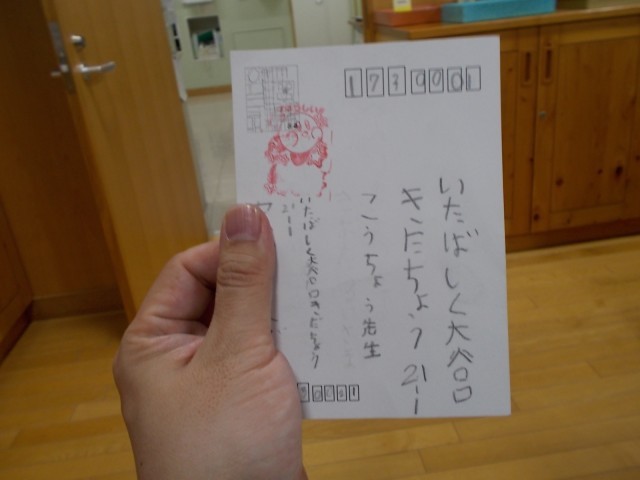 1730001
いたばしく大谷口
きたちょう 21-1
こうちょう先生
いたばしく大谷口きたちょう
21-1